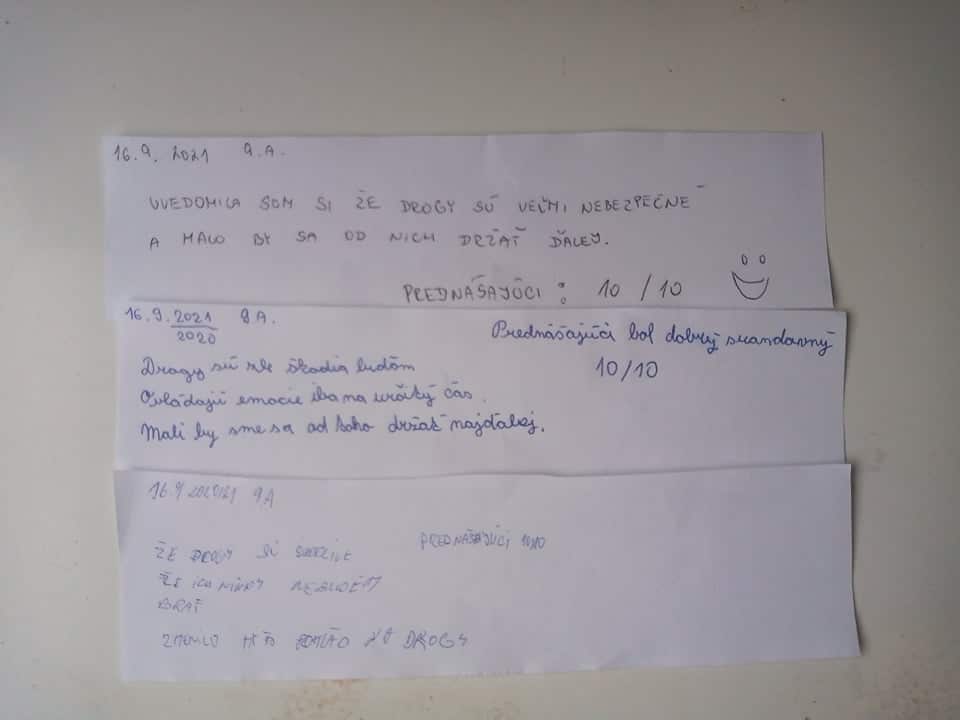 16.9. 2021 9.A.
UVEDOMILA SOM SI ŽE DROGY SÚ VEĽMI NEBEZPEČNÉ
A MALO BY SA OD NICH DRŽAŤ ĎALEJ.
PREDNÁŠAJÚCI : 10 / 10
16.9. 2021 9.A.
2020
Prednášajúči bol dobrý srandovný
10/10
Drogy sú zle škodia ludóm
Ovládajú emocie iba na urćitý čas.
Mali by sme sa od toho držať najďalej.
16.9 2020/21 9A
PREDNÁŠAJÚCI 10/10
ŽE DROGY SÚ
ŽE ICH NIKDY NEBUDEM
BRAŤ
DROGY